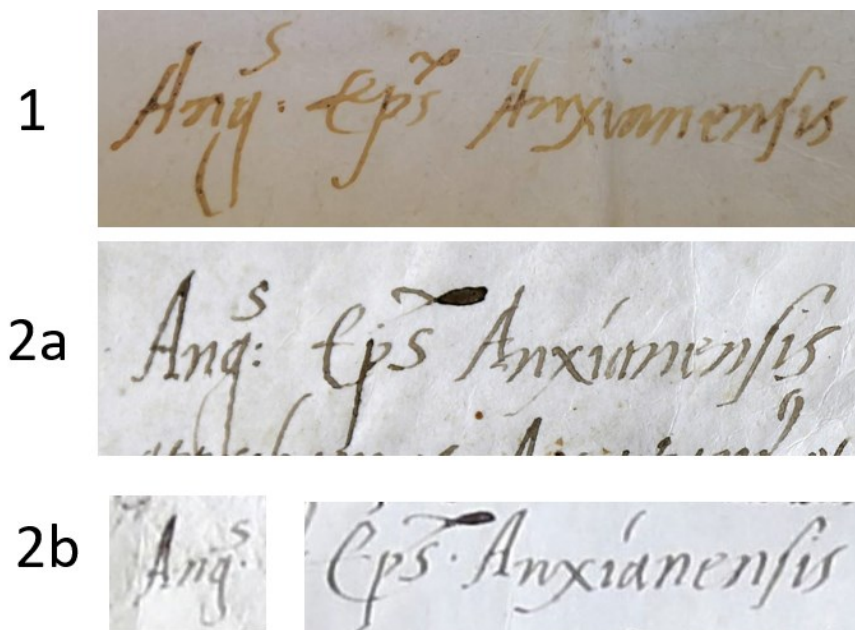 1
Angs: Eps Anxianensis
2a
Angs: Eps Anxianensis
2b
Angs. Eps. Anxianensis